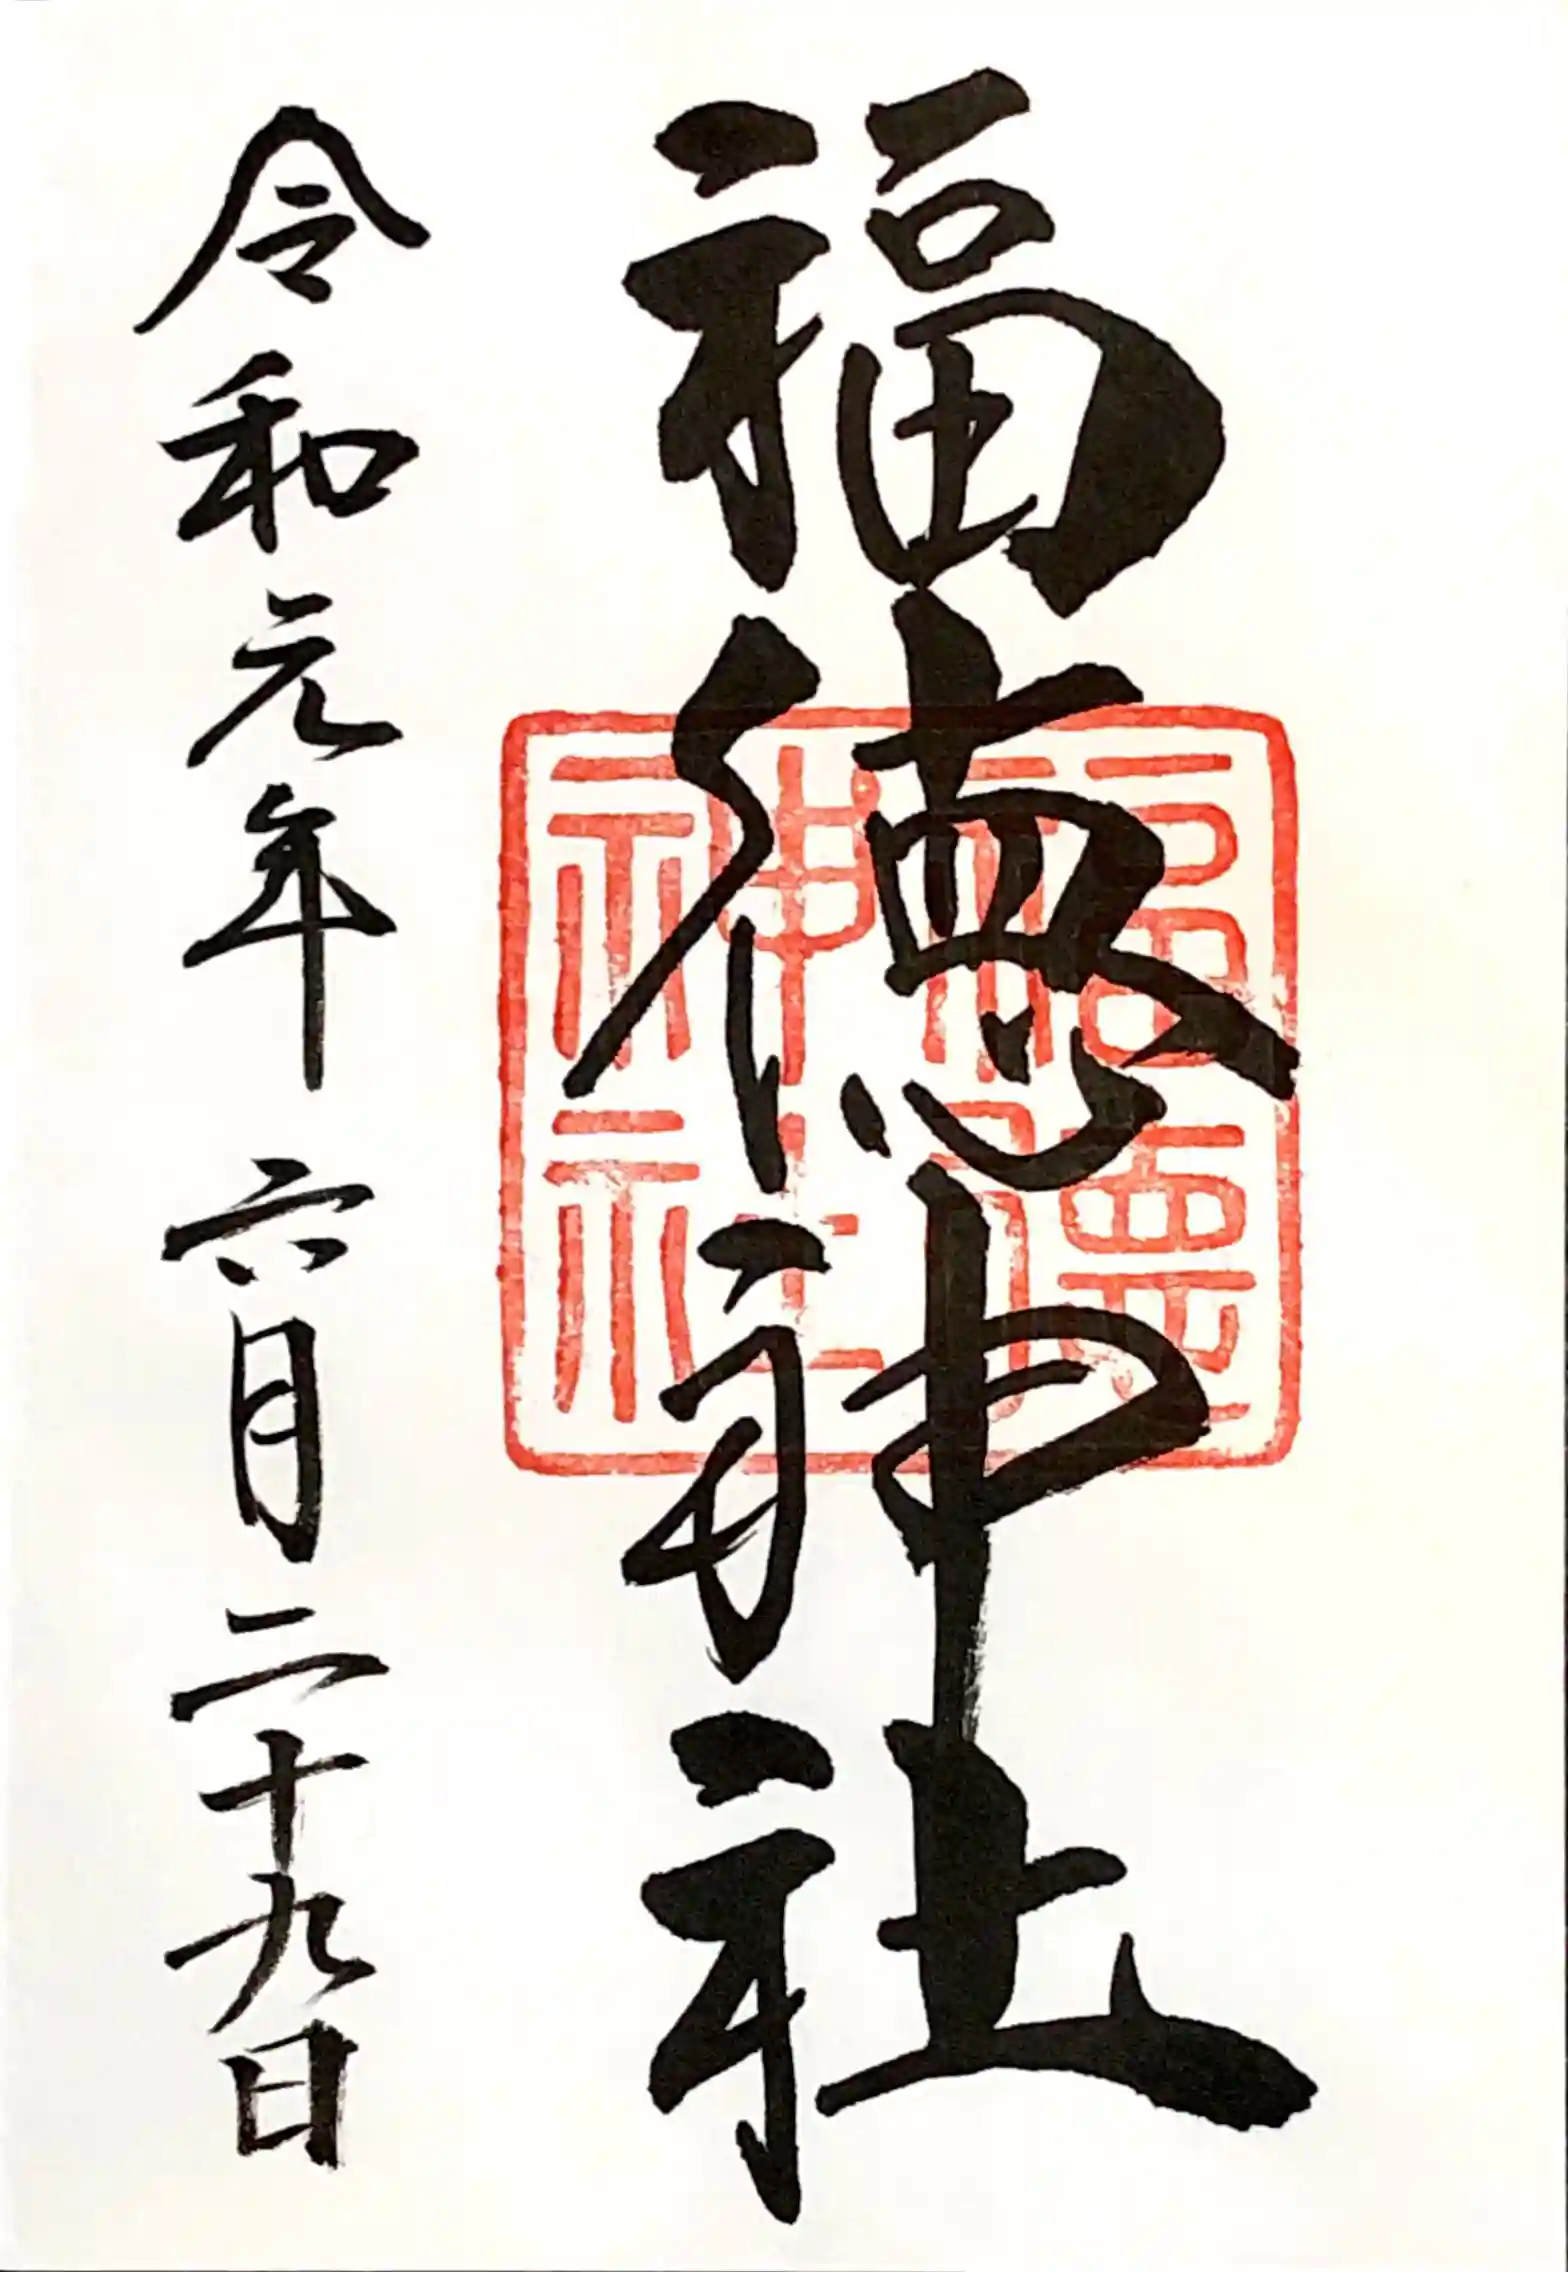 福徳神社
福徳
神社
令和元年 六月二十九日